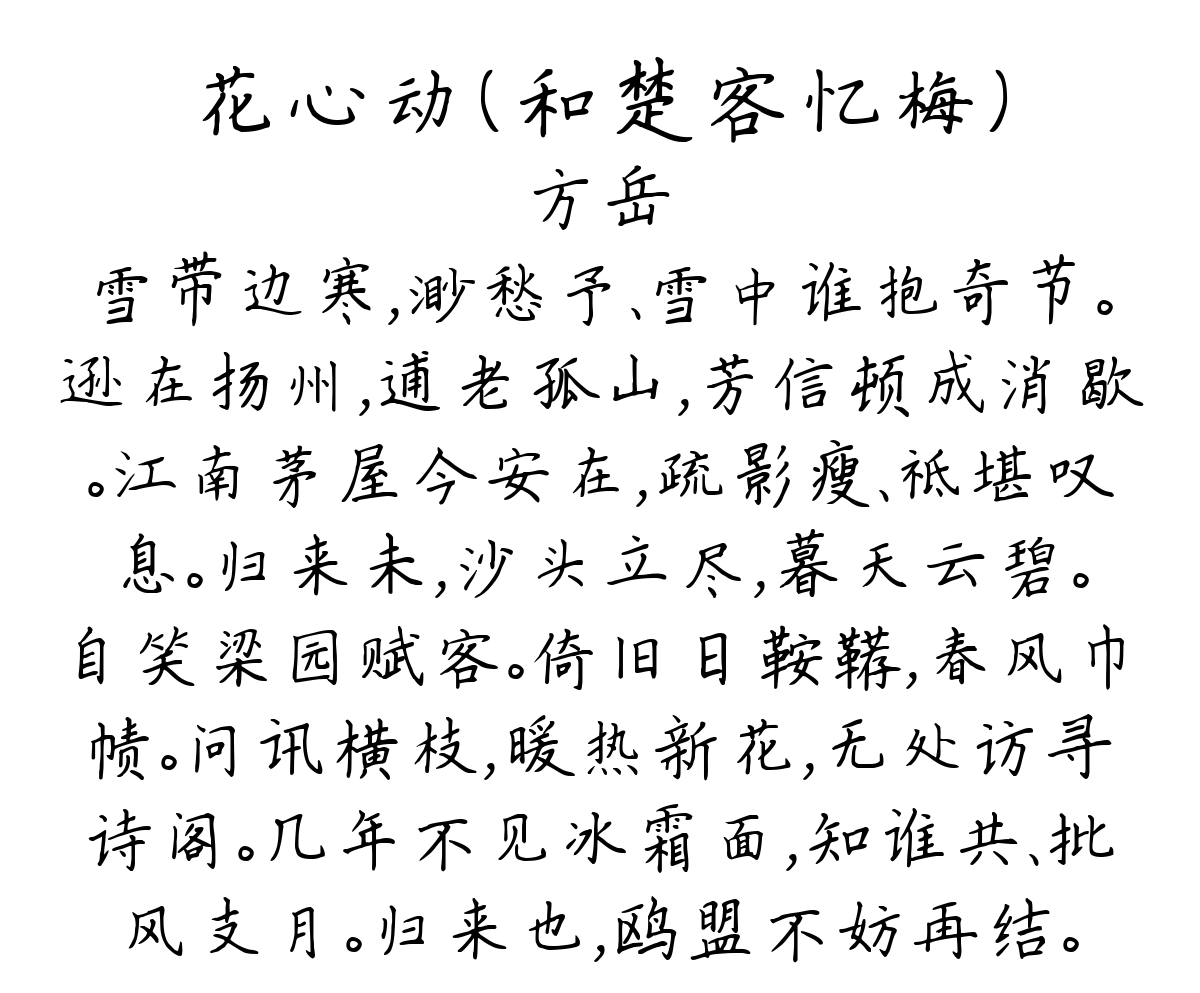 花心动(和楚客忆梅)
方岳
雪带边寒,渺愁予、雪中谁抱奇节。
逊在扬州,逋老孤山,芳信顿成消歇
。江南茅屋今安在,疏影瘦、祗堪叹
息。归来未,沙头立尽,暮天云碧。
自笑梁园赋客。倚旧日鞍鞯,春风巾
帻。问讯横枝,暖热新花,无处访寻
诗阁。几年不见冰霜面,知谁共、批
风支月。归来也,鸥盟不妨再结。